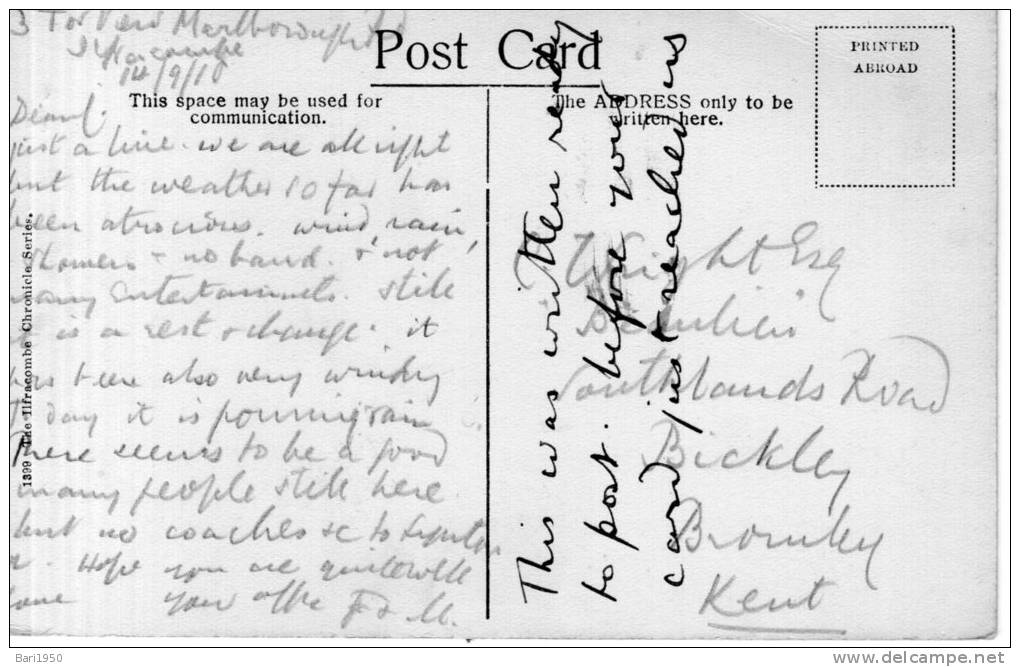 3 Tor View Marlborough Rd
Ilfracombe
14/9/10
Post Card
PRINTED
ABROAD
This space may be used for
communication.
The ADDRESS only to be
written here.
just a line. we are all right
but the weather so far has
been atrocious. wind rain,
showers & no band. & not
many entertainments. still
it is a rest & change. it
has been also very windy
To day it is pouring rain
There seems to be a good
many people still here
but no coaches &c to Lynton
Hope you are quite well
your affc F & M.
This was written ready
to post. before your
card just reached us
Wright Esq
Beaulieu
Southlands Road
Bickley
Bromley
Kent
1399 The Ilfracombe Chronicle Series.
Bari1950
www.delcampe.net